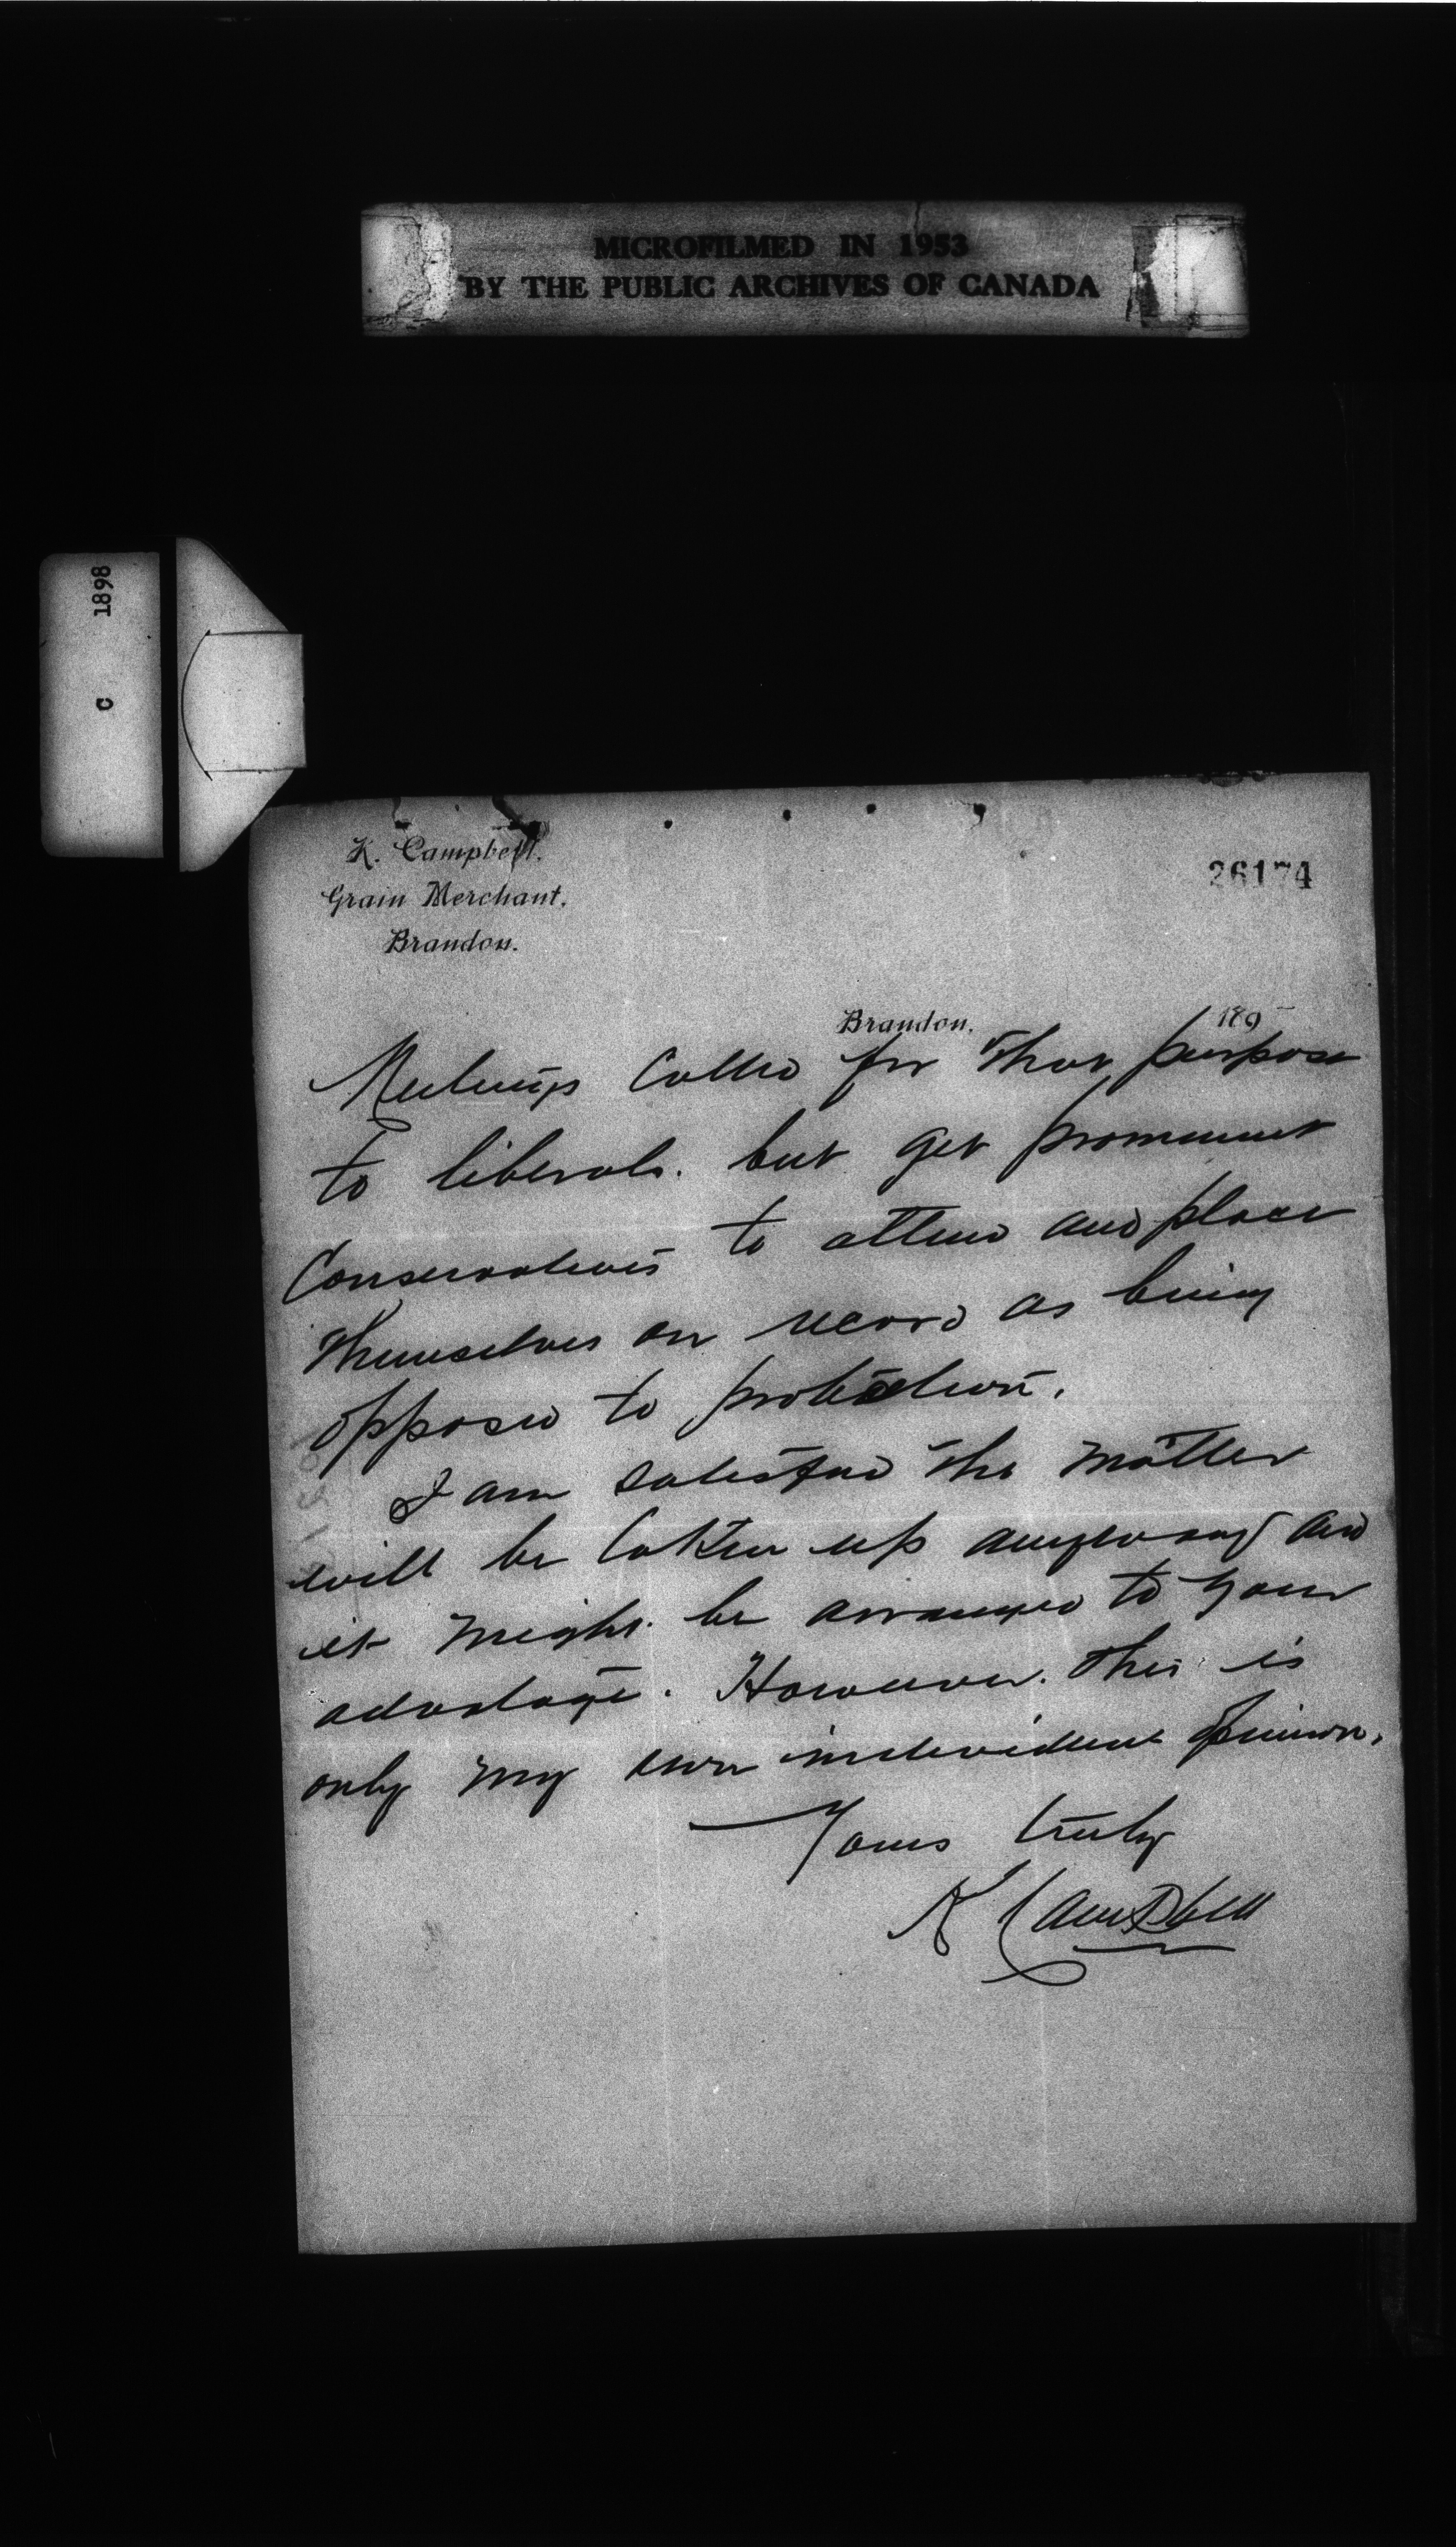 MICROFILMED IN 1953
BY THE PUBLIC ARCHIVES OF CANADA
C 1898
K. Campbell.
Grain Merchant,
Brandon.
26174
Brandon, 189
Meetings Called for that purpose
to liberals. but get prominent
Conservatives to attend and place
themselves on record as being
opposed to protection.
I am satisfied the matter
will be taken up anyway and
it might. be arranged to your
advantage. However. this is
only my own individual opinion.
Yours truly
K Campbell